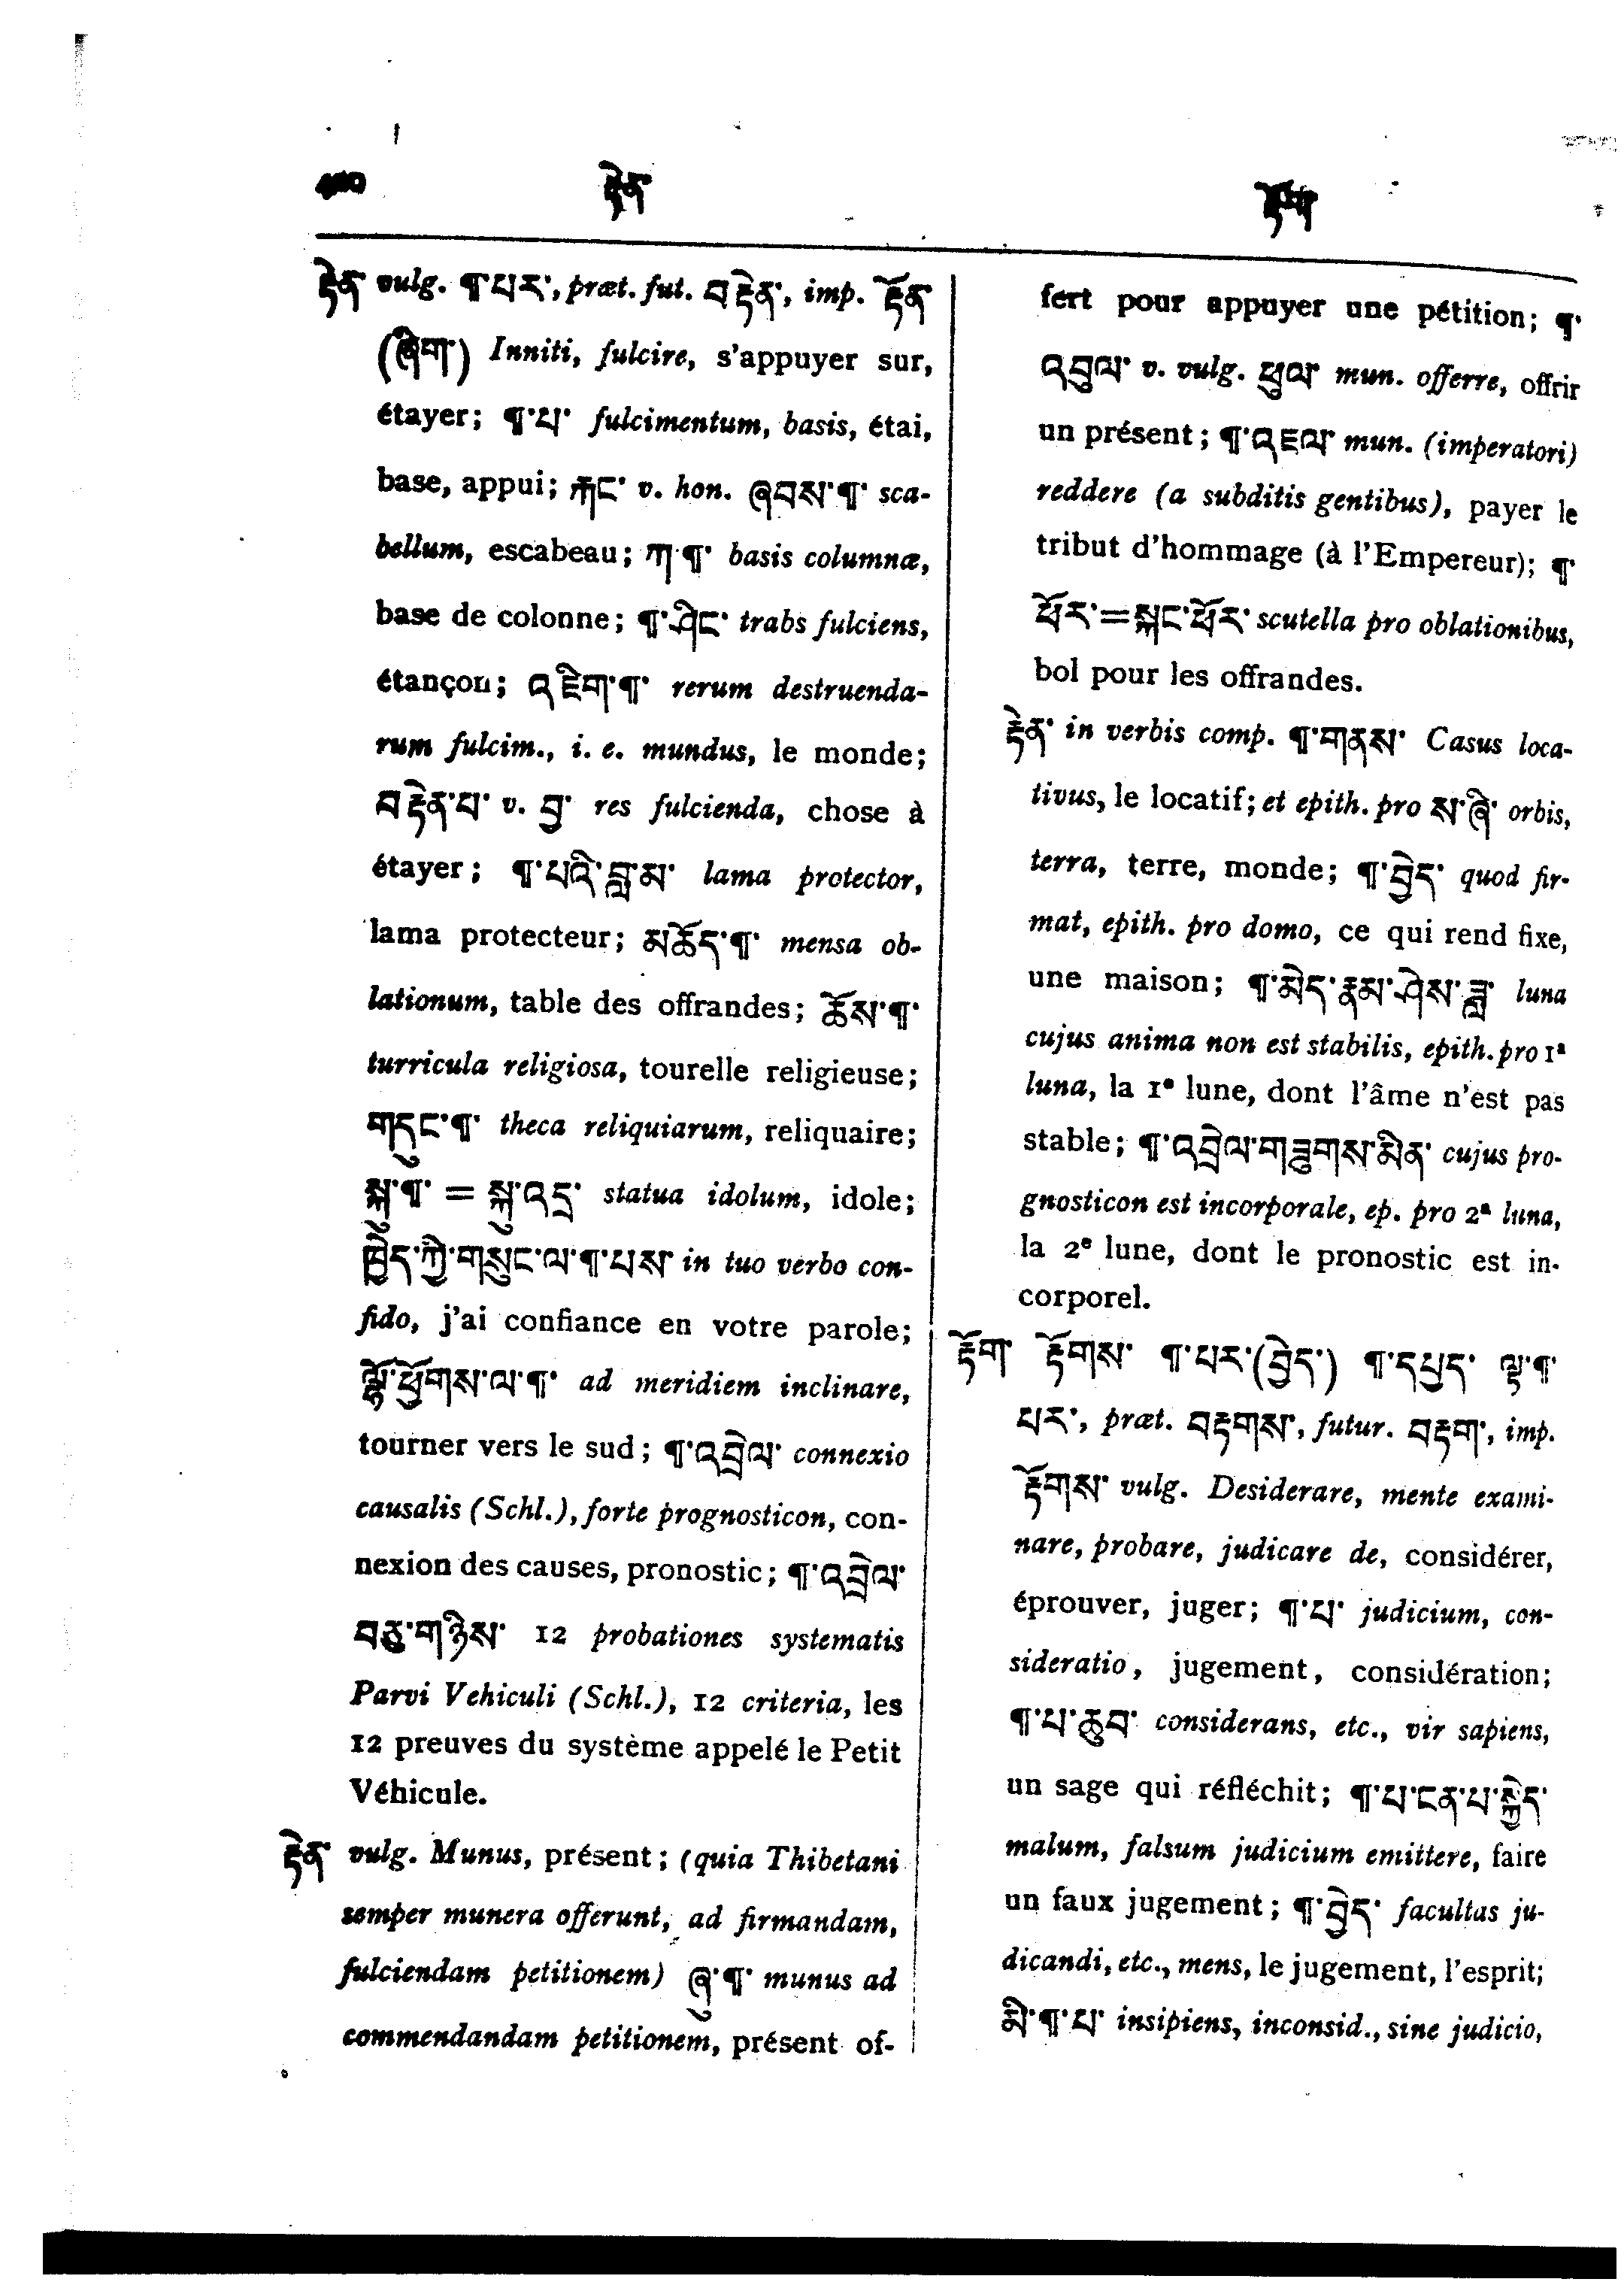 རྟེན
རྟེན་ vulg. ¶་པར་, præt. fut. བརྟེན་, imp. རྟོན་
(ཞིག་) Inniti, fulcire, s'appuyer sur,
étayer; ¶་པ་ fulcimentum, basis, étai,
base, appui; རྐང་ v. hon. ཞབས་¶་ sca-
bellum, escabeau; ཀ་¶་ basis columnæ,
base de colonne; ¶་ཤིང་ trabs fulciens,
étançon; འཇིག་¶་ rerum destruenda-
rum fulcim., i. e. mundus, le monde;
བརྟེན་པ་ v. བྱ་ res fulcienda, chose à
étayer; ¶་པའི་བླ་མ་ lama protector,
lama protecteur; མཆོད་¶་ mensa ob-
lationum, table des offrandes; ཆོས་¶་
turricula religiosa, tourelle religieuse;
གདུང་¶་ theca reliquiarum, reliquaire;
སྐུ་¶་ = སྐུ་འདྲ་ statua idolum, idole;
ཁྱེད་ཀྱི་གསུང་ལ་¶་པས་ in tuo verbo con-
fido, j'ai confiance en votre parole;
ལྷོ་ཕྱོགས་ལ་¶་ ad meridiem inclinare,
tourner vers le sud; ¶་འབྲེལ་ connexio
causalis (Schl.), forte prognosticon, con-
nexion des causes, pronostic; ¶་འབྲེལ་
བཅུ་གཉིས་ 12 probationes systematis
Parvi Vehiculi (Schl.), 12 criteria, les
12 preuves du système appelé le Petit
Véhicule.
རྟེན་ vulg. Munus, présent; (quia Thibetani
semper munera offerunt, ad firmandam,
fulciendam petitionem) ཞུ་¶་ munus ad
commendandam petitionem, présent of-
fert pour appuyer une pétition; ¶་
འབུལ་ v. vulg. ཕུལ་ mun. offerre, offrir
un présent; ¶་འཇལ་ mun. (imperatori)
reddere (a subditis gentibus), payer le
tribut d'hommage (à l'Empereur); ¶་
ཕོར་=སྐང་ཕོར་ scutella pro oblationibus,
bol pour les offrandes.
རྟེན་ in verbis comp. ¶་གནས་ Casus loca-
tivus, le locatif; et epith. pro ས་ཞི་ orbis,
terra, terre, monde; ¶་བྱེད་ quod fir-
mat, epith. pro domo, ce qui rend fixe,
une maison; ¶་མེད་རྣམ་ཤེས་ཟླ་ luna
cujus anima non est stabilis, epith. pro 1ª
luna, la 1e lune, dont l'âme n'est pas
stable; ¶་འབྲེལ་གཟུགས་མིན་ cujus pro-
gnosticon est incorporale, ep. pro 2ª luna,
la 2e lune, dont le pronostic est in-
corporel.
རྟོག་ རྟོགས་ ¶་པར་(བྱེད་) ¶་དཔྱད་ ལྟ་¶་
པར་, præt. བརྟགས་, futur. བརྟག་, imp.
རྟོགས་ vulg. Desiderare, mente exami-
nare, probare, judicare de, considérer,
éprouver, juger; ¶་པ་ judicium, con-
sideratio, jugement, considération;
¶་པ་ཆུབ་ considerans, etc., vir sapiens,
un sage qui réfléchit; ¶་པ་ངན་པ་སྐྱེད་
malum, falsum judicium emittere, faire
un faux jugement; ¶་བྱེད་ facultas ju-
dicandi, etc., mens, le jugement, l'esprit;
མི་¶་པ་ insipiens, inconsid., sine judicio,